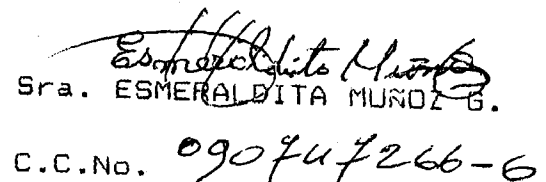 Esmeraldita Muñoz
Sra. ESMERALDITA MUÑOZ G.
C.C.No. 090747266-6